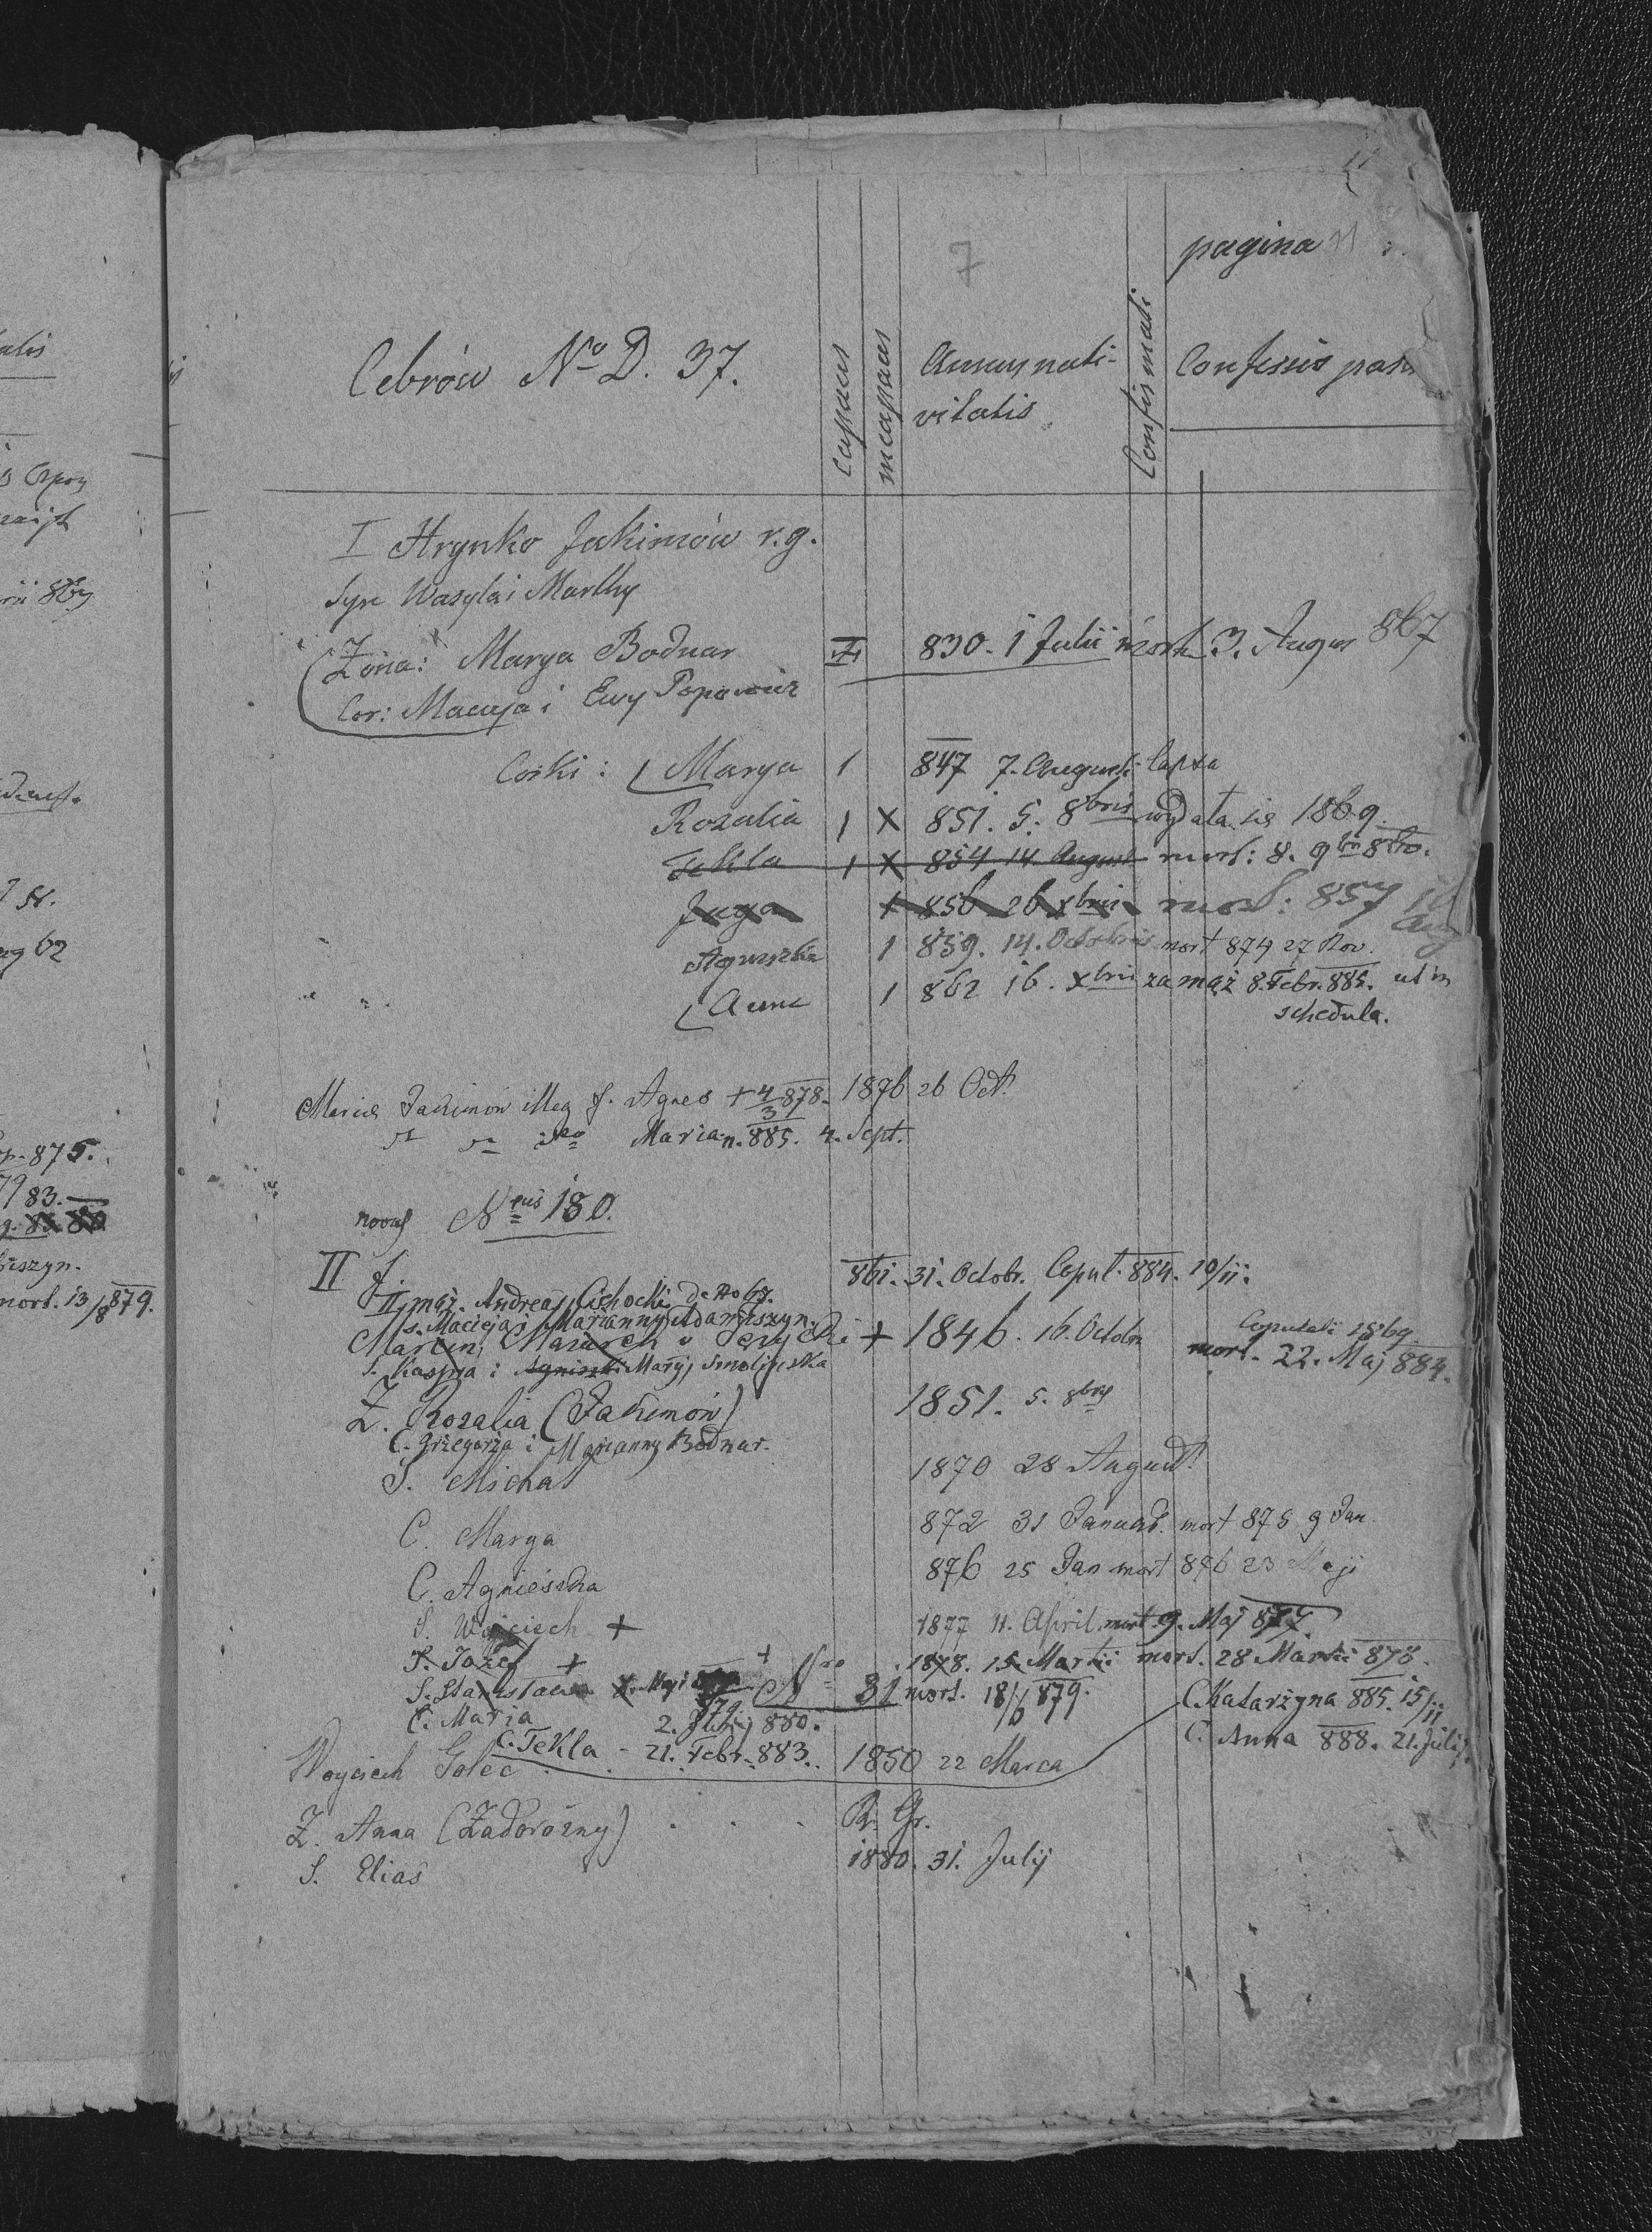 pagina 11
7
Cebrów No D. 37.
capaces
incapaces
Annus nati-
vitatis
Confirmati
Confessio pasch
I Hrynko Jakimów r.g.
Syn Wasyla i Marthy
Żona: Marya Bodnar 830. 1 Julii mort. 3. Augus 867
Cor: Macieja i Ewy Popowicz
Córki: Marya 1 847 7. Augusti lapsa
Rozalia 1 X 851. 5. 8bris wydała się 1869.
Tekla 1 X 854 14 August mort: 8. 9br 860.
Juga 1 856 26 xbris mort: 857 Aug
Agnieszka 1 859. 14. Octobris mort 874 27 Nov.
Anna 1 862 16. xbris zamąż 8. Febr. 885. ut in
schedula.
Maria Jakimów illeg f. Agnes + 4/3 878. 1876 26 Oct.
Maria n. 885. 4. Sept.
novus Nrus 180.
II
II mąż. Andreas Cichocki de No 67. 861. 31. Octobr. Copul. 884. 10/11.
s. Macieja i Marianny Adamiszyn.
Marcin Mazurek + 1846. 16. Octobr Copulati 1869.
mort. 22. Maj 884.
S. Kaspra i Agnieszki Maryj Smolińska
Ż. Rozalia (Jakimów) 1851. 5. 8bris
C. Grzegorza i Marianny Bodnar.
S. Michał 1870 28 August
C. Marya 872 31 Januar. mort 875 9 Jan.
C. Agnieszka 876 25 Jan mort 876 23 Maji
S. Wojciech + 1877 11. April. mort. 9. Maj 877.
S. Józef + 1878. 15. Martii mort. 28 Martii 878.
S. Stanisław Maji 879 + Nro 31 mort. 18/6 879.
C. Maria 2. Julij 880. C. Katarzyna 885. 15/11.
C. Tekla - 21. Febr. 883. C. Anna 888. 21. Julij.
Woyciech Golec 1850 22 Marca
Ż. Anna (Zadorożny) R. Gr.
S. Elias 1880. 31. Julij